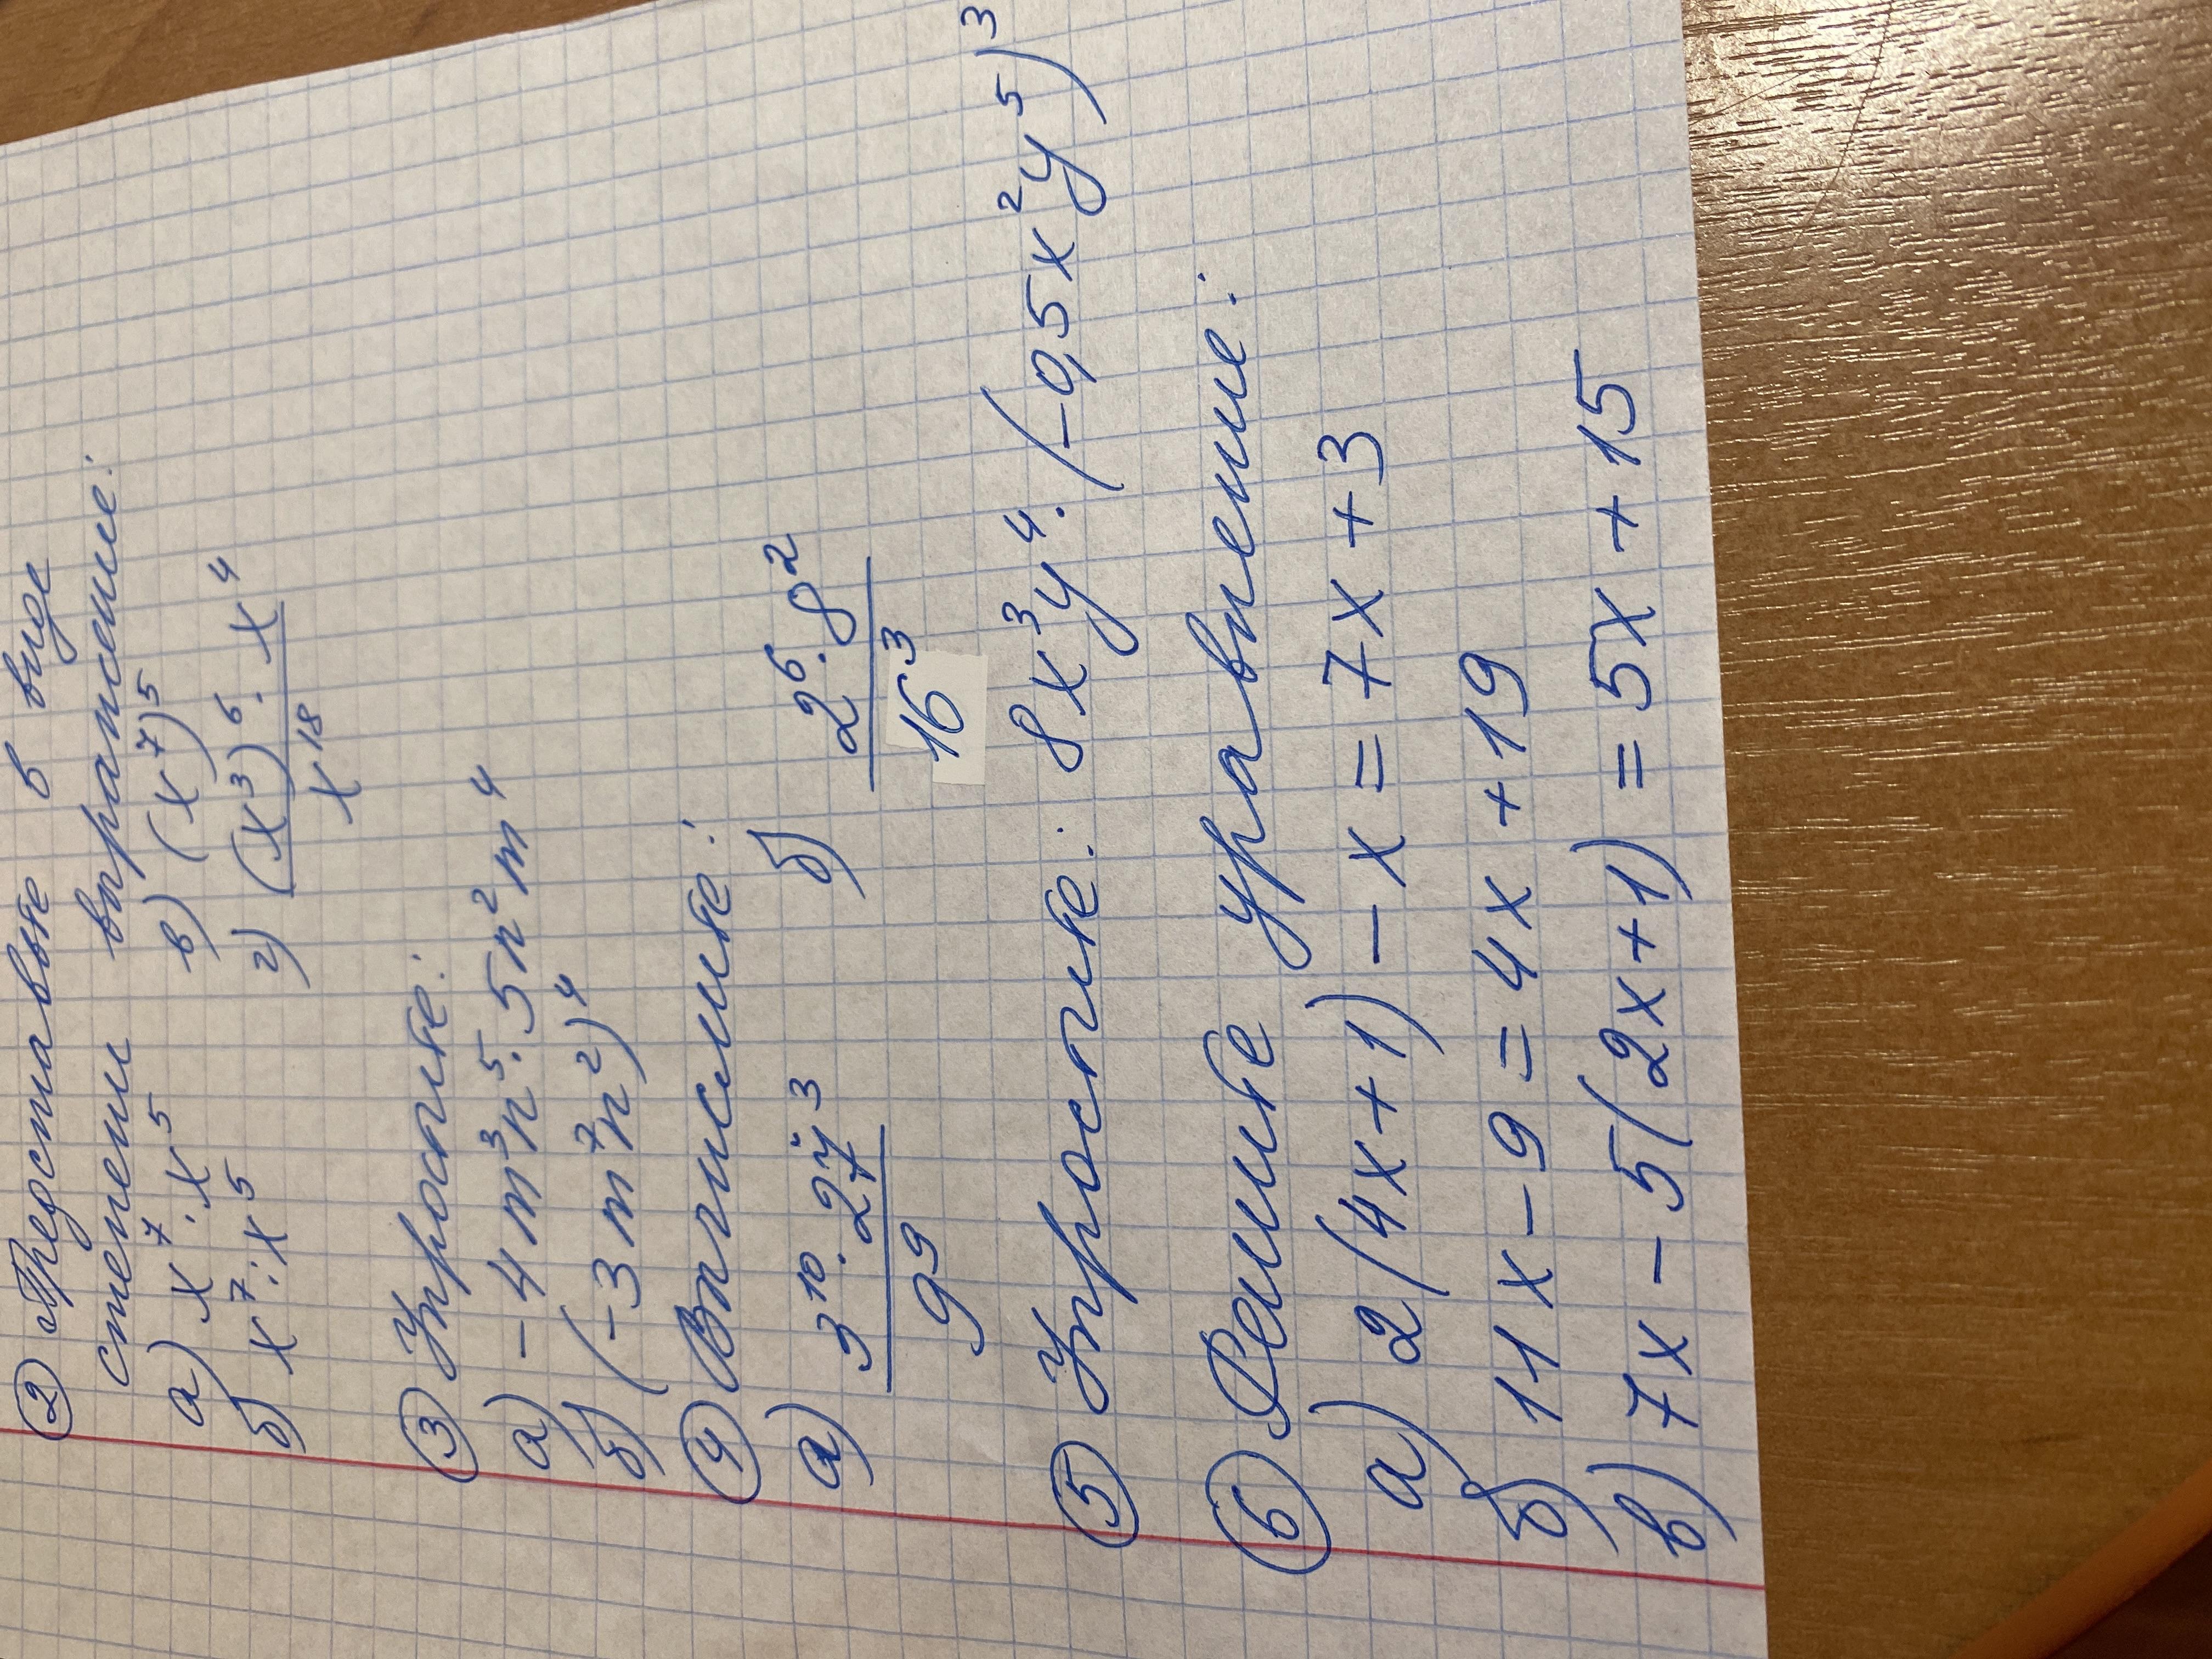 ② Представьте в виде
степени выражение:
а) x⁷ · x⁵ в) (x⁷)⁵
б) x⁷ : x⁵ г) (x³)⁶ · x⁴ / x¹⁸
③ Упростите:
а) -4m³n⁵ · 5n²m⁴
б) (-3m⁷n²)⁴
④ Вычислите:
а) 3¹⁰ · 27³ / 9⁹ б) 2⁶ · 8² / 16³
⑤ Упростите: 8x³y⁴ · (-0,5x²y⁵)³
⑥ Решите уравнение:
а) 2(4x+1) - x = 7x + 3
б) 11x - 9 = 4x + 19
в) 7x - 5(2x+1) = 5x + 15